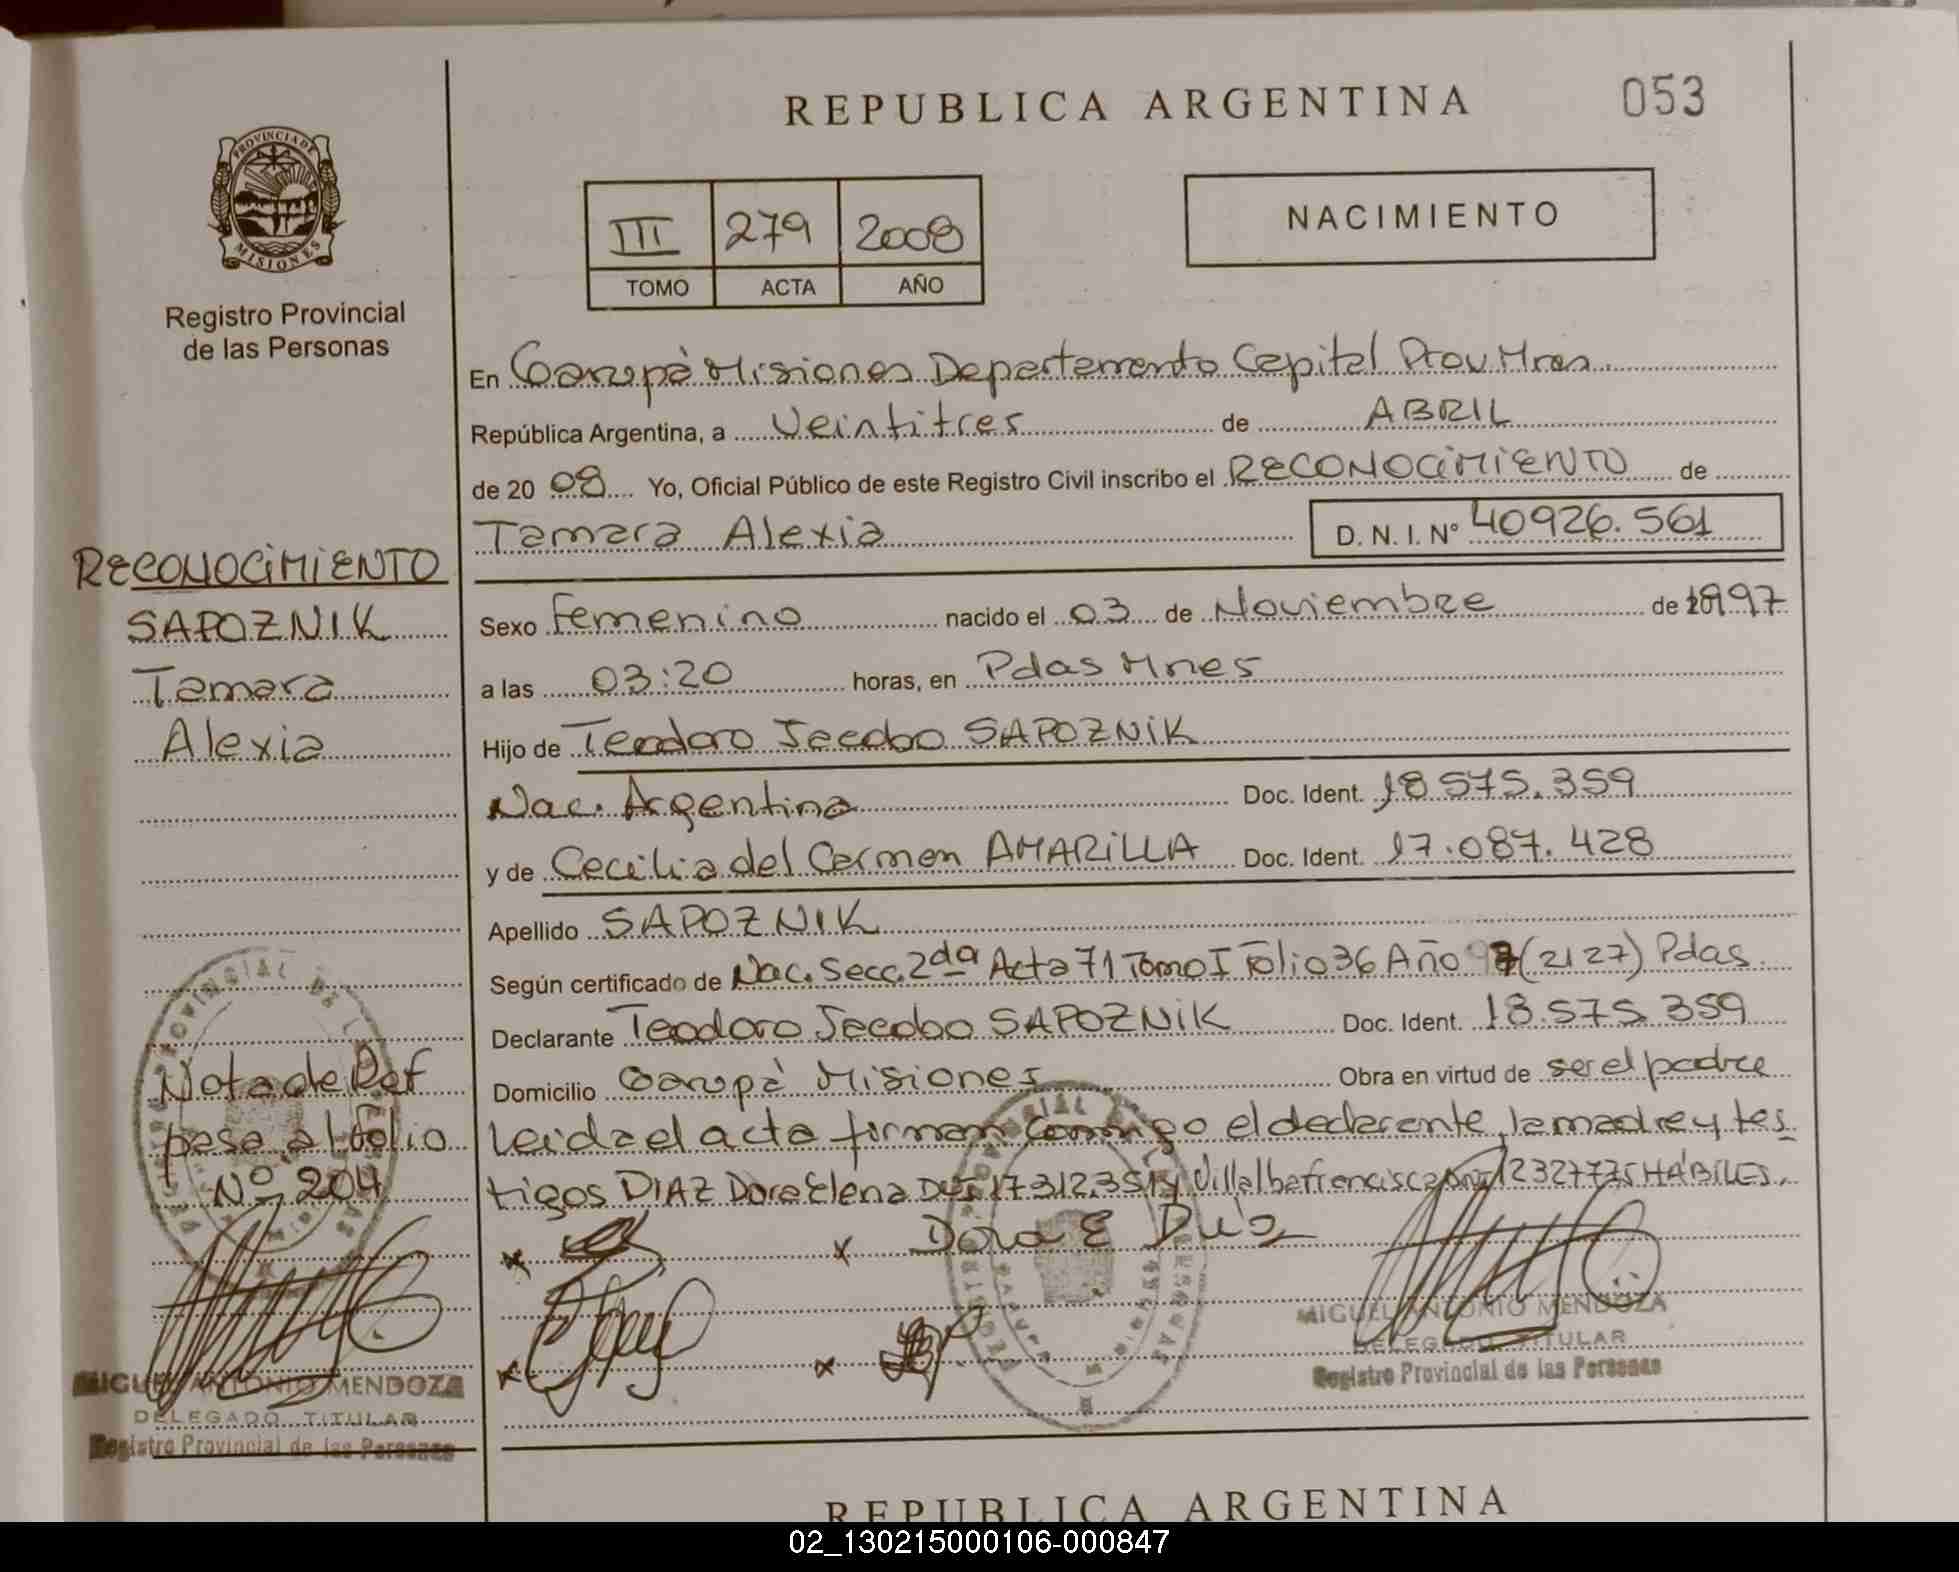 REPUBLICA ARGENTINA
053
PROVINCIA DE
MISIONES
Registro Provincial
de las Personas
III 279 2008
TOMO ACTA AÑO
NACIMIENTO
En Garupà Misiones Departamento Capital Prov. Mnes
República Argentina, a Veintitres de ABRIL
de 20 08 Yo, Oficial Público de este Registro Civil inscribo el RECONOCIMIENTO de
Tamara Alexia D. N. I. Nº 40926.561
RECONOCIMIENTO
SAPOZNIK
Tamara
Alexia
Sexo Femenino nacido el 03 de Noviembre de 1997
a las 03:20 horas, en Pdas Mnes
Hijo de Teodoro Jacobo SAPOZNIK
Nac. Argentina Doc. Ident. 18.575.359
y de Cecilia del Carmen AMARILLA Doc. Ident. 17.087.428
Apellido SAPOZNIK
Según certificado de Nac. Secc. 2da Acta 71 Tomo I Folio 36 Año 97 (2127) Pdas
Declarante Teodoro Jacobo SAPOZNIK Doc. Ident. 18.575.359
Domicilio Garupà Misiones Obra en virtud de ser el padre
Leida el acta firman conmigo el declarante, la madre y tes
tigos DIAZ Dora Elena DNI 17.312.351 y Villalba Francisca DNI 12327775 HÁBILES.
Nota de Ref
pasa al folio
Nº 204
Dora E Diaz
MIGUEL ANTONIO MENDOZA
DELEGADO TITULAR
Registro Provincial de las Personas
MIGUEL ANTONIO MENDOZA
DELEGADO TITULAR
Registro Provincial de las Personas
REPUBLICA ARGENTINA
02_130215000106-000847